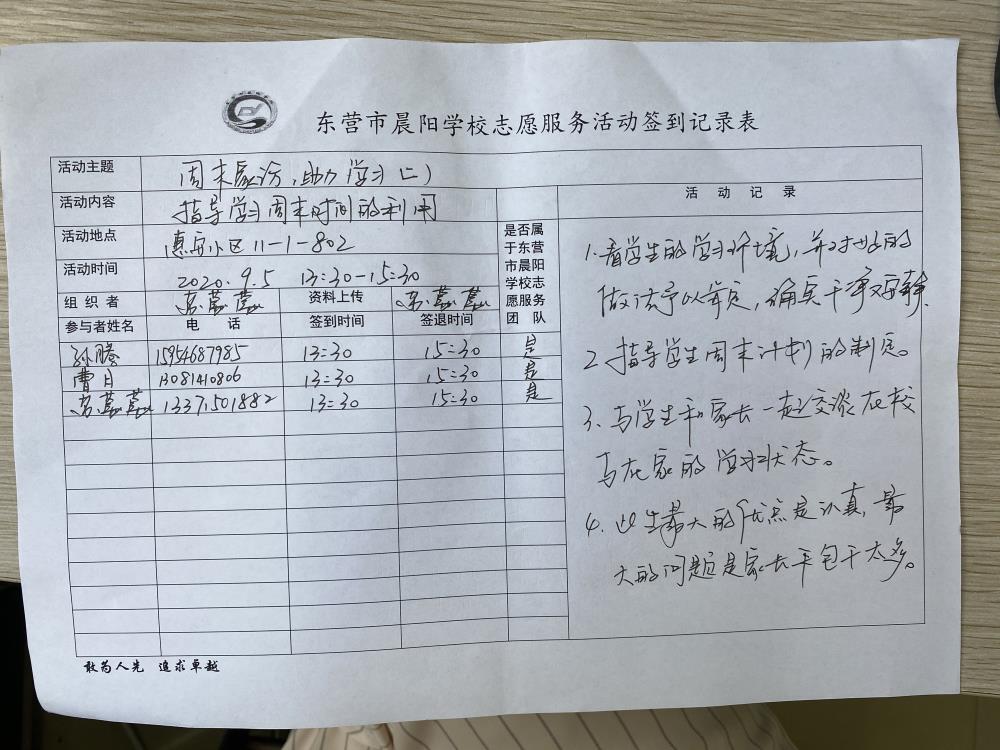 东营市晨阳学校志愿服务活动签到记录表
活动主题 周末家访，助力学习（二）
活动内容 指导学习周末时间的利用
活动地点 惠安小区11-1-802
活动时间 2020.9.5 13:30-15:30
组织者 资料上传
参与者姓名 电话 签到时间 签退时间 是否属于东营市晨阳学校志愿服务团队
孙腾 15954687985 13:30 15:30 是
曹月 13081410806 13:30 15:30 是
13371501882 13:30 15:30 是
活动记录
1.看学生的学习环境，并对此的
做法予以肯定，确实干净安静
2.指导学生周末计划的制定。
3.与学生和家长一起交谈在校
与在家的学习状态。
4.此生最大的优点是认真，最
大的问题是家长平包干太多。
敢为人先 追求卓越